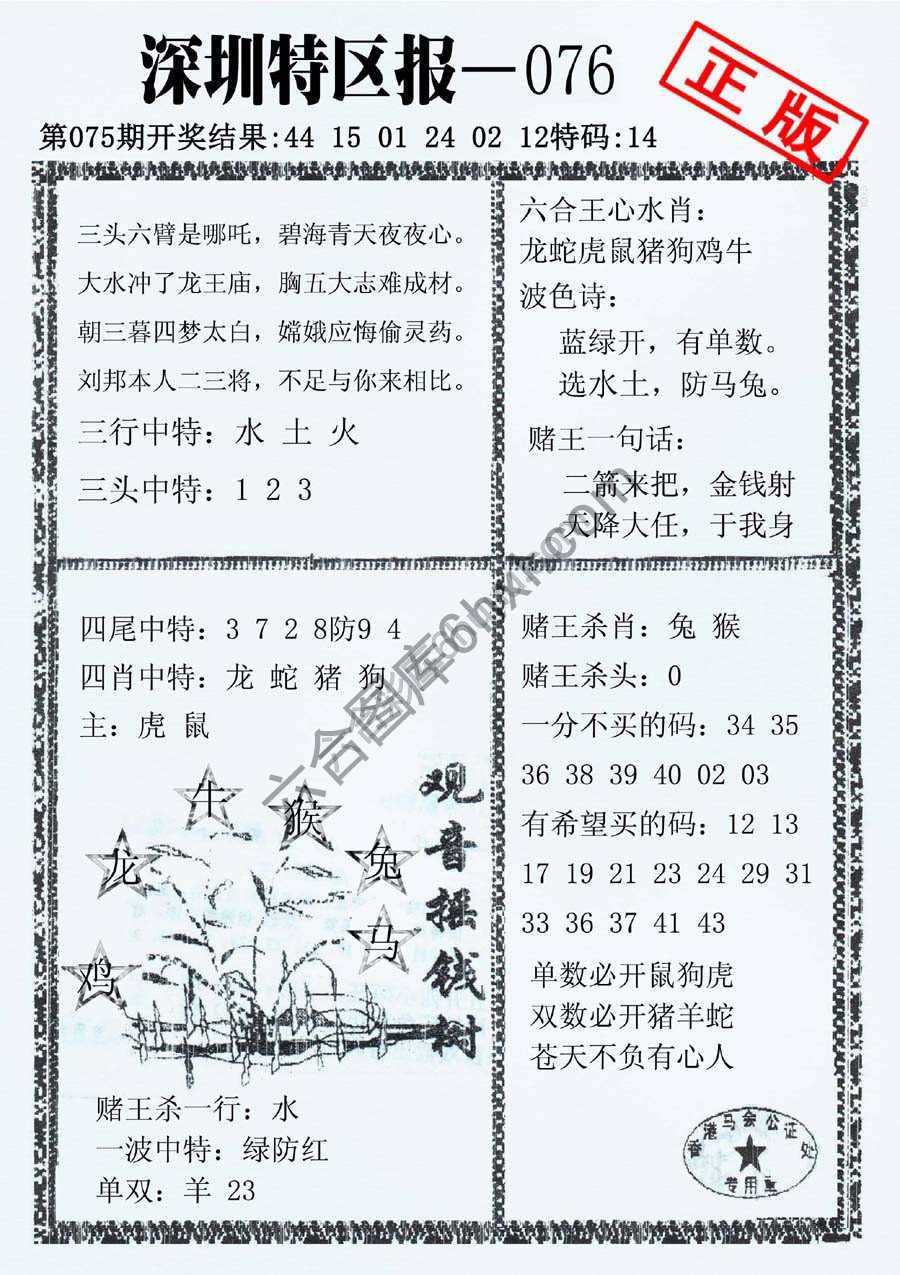 深圳特区报—076
正版
第075期开奖结果:44 15 01 24 02 12特码:14
三头六臂是哪吒，碧海青天夜夜心。
大水冲了龙王庙，胸五大志难成材。
朝三暮四梦太白，嫦娥应悔偷灵药。
刘邦本人二三将，不足与你来相比。
三行中特：水 土 火
三头中特：1 2 3
六合王心水肖：
龙蛇虎鼠猪狗鸡牛
波色诗：
蓝绿开，有单数。
选水土，防马兔。
赌王一句话：
二箭来把，金钱射
天降大任，于我身
四尾中特：3 7 2 8防9 4
四肖中特：龙 蛇 猪 狗
主：虎 鼠
牛
猴
龙
兔
马
鸡
观音摇钱树
赌王杀一行：水
一波中特：绿防红
单双：羊 23
赌王杀肖：兔 猴
赌王杀头：0
一分不买的码：34 35
36 38 39 40 02 03
有希望买的码：12 13
17 19 21 23 24 29 31
33 36 37 41 43
单数必开鼠狗虎
双数必开猪羊蛇
苍天不负有心人
香港马会公证处
专用章
六合图库6hxr.com